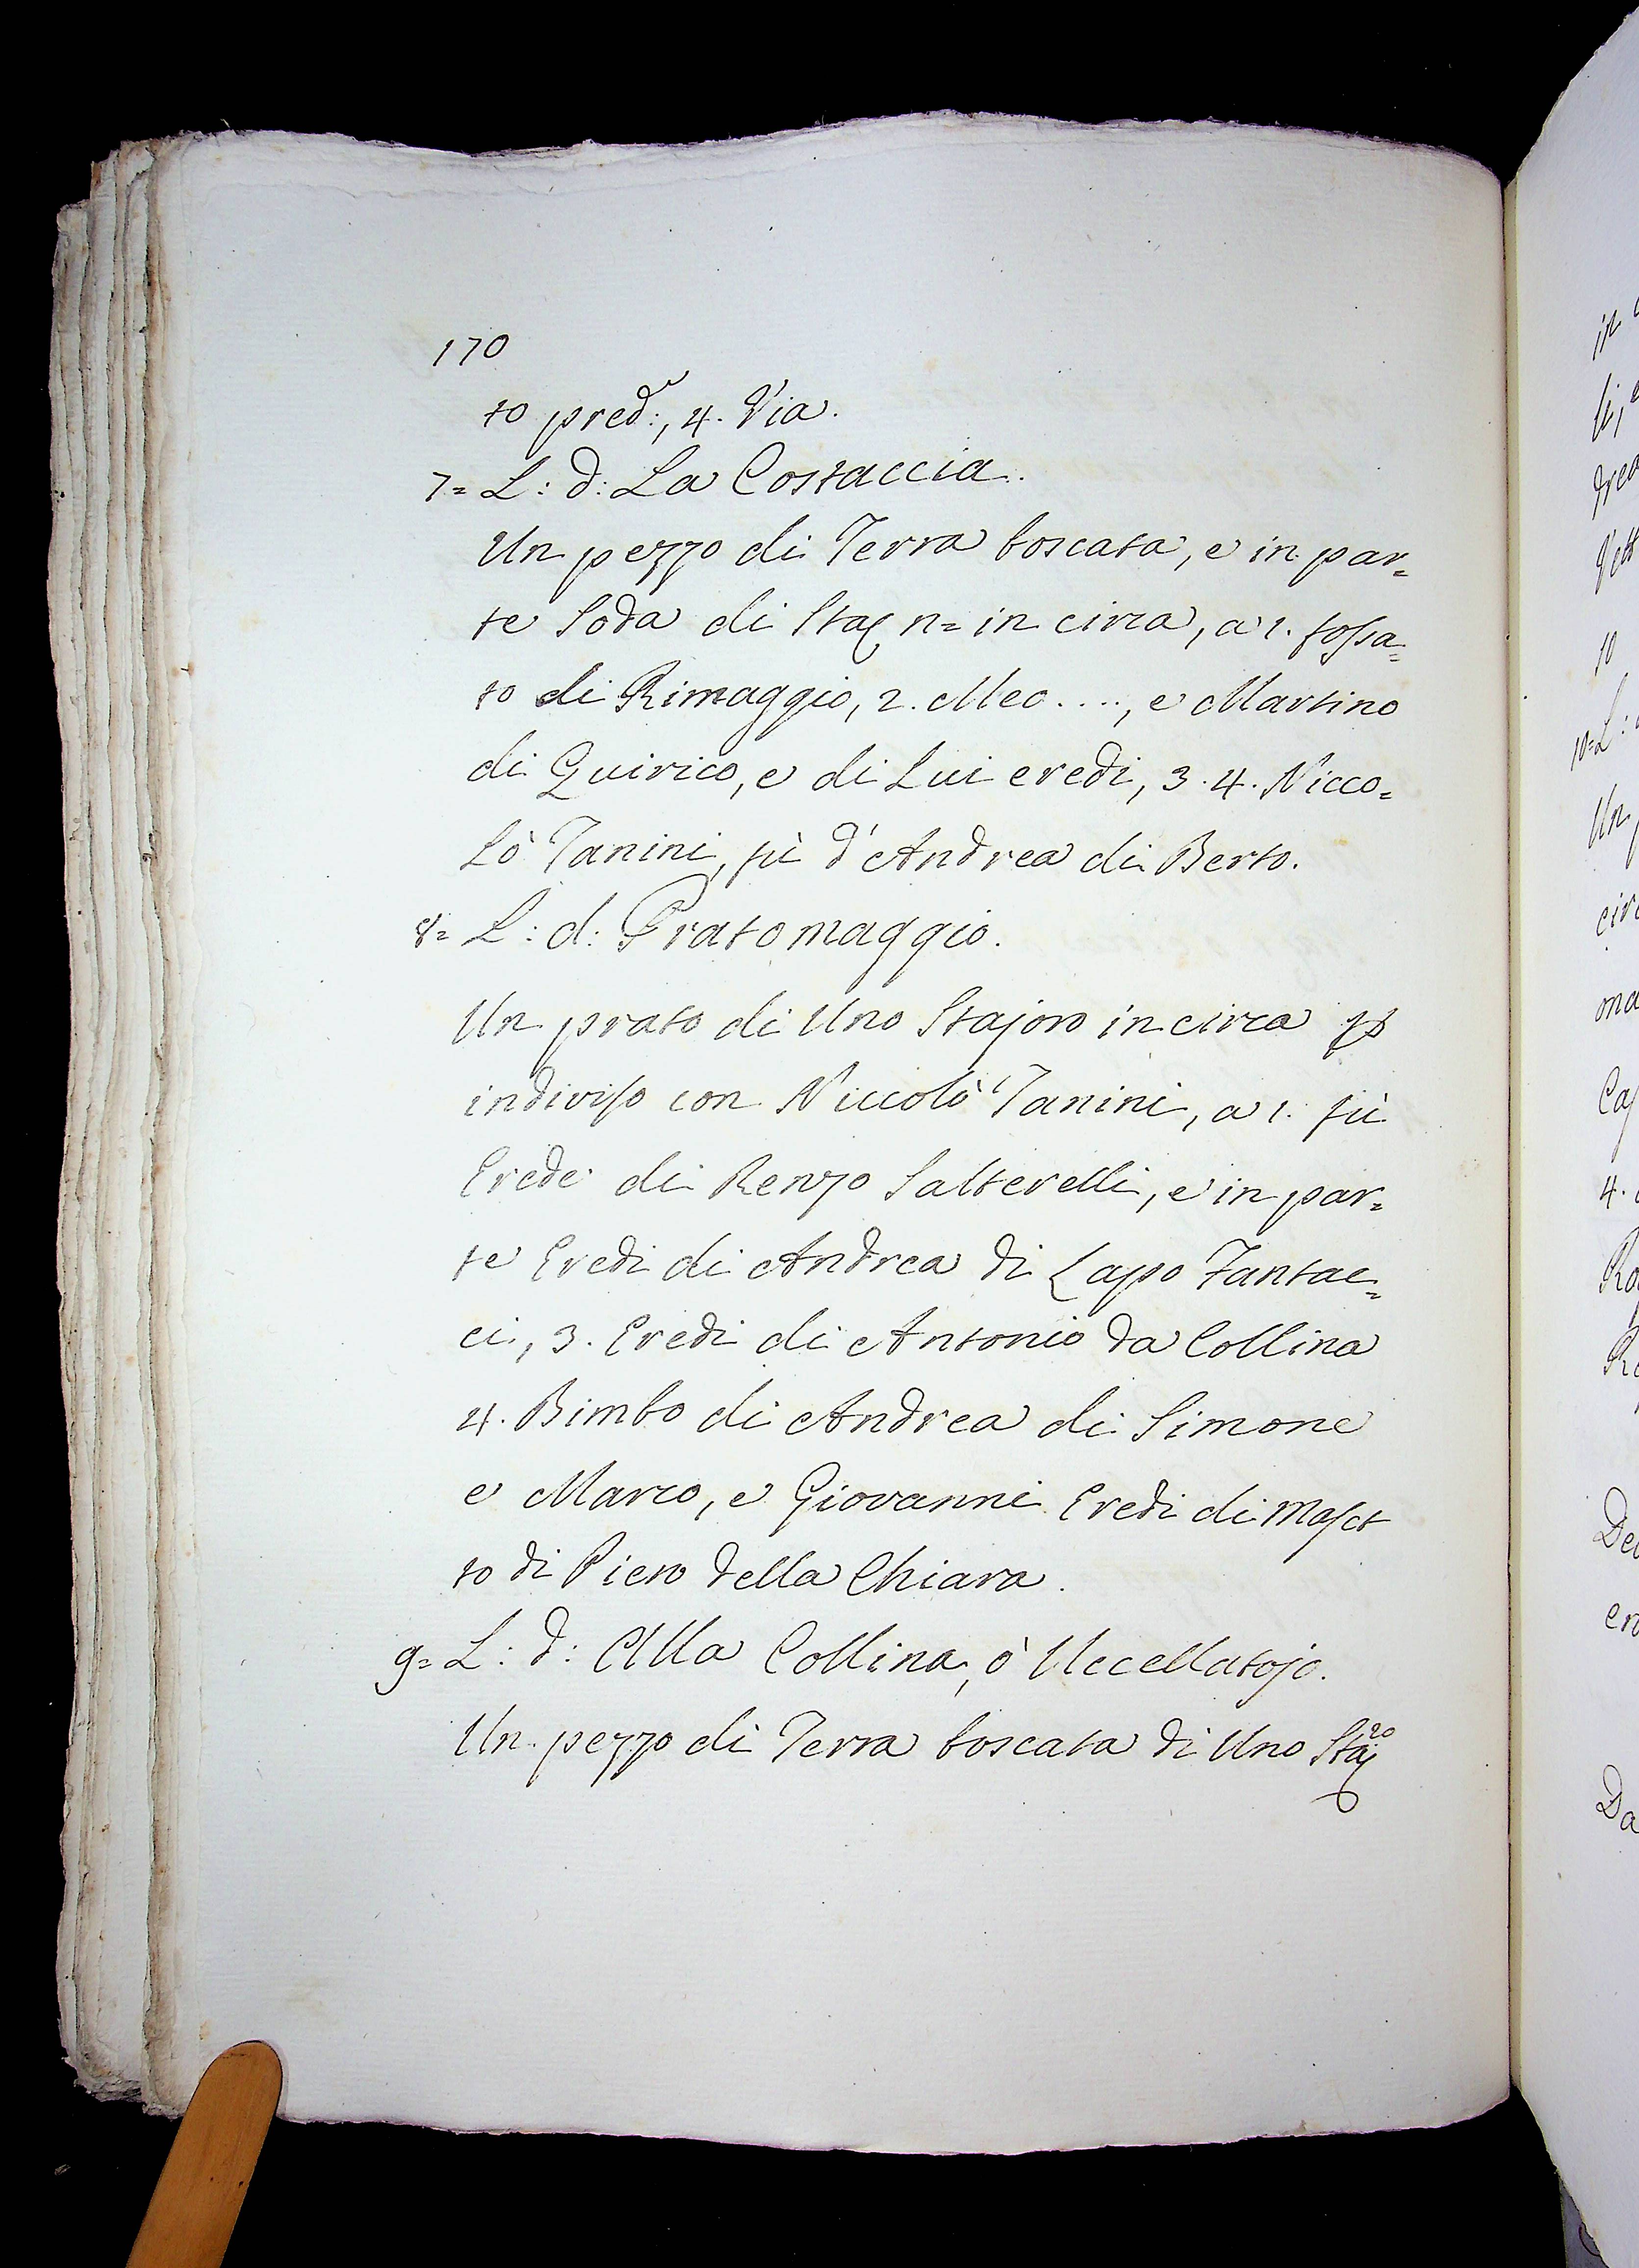 170
to pred:, 4. Via.
7= L: d: La Costaccia.
Un pezzo di Terra boscata, e in par=
te Soda di Staj n= in circa, a 1. fossa=
to di Rimaggio, 2. Meo ...., e Martino
di Quirico, e di Lui eredi, 3. 4. Nicco=
Lò Tanini, fù d'Andrea di Berto.
8= L: d: Pratomaggio.
Un prato di Uno Stajoro in circa p
indiviso con Niccolò Tanini, a 1. fù
Erede di Renzo Salterelli, e in par=
te Eredi di Andrea di Lapo Fantac=
ci, 3. Eredi di Antonio da Collina
4. Bimbo di Andrea di Simone
e Marco, e Giovanni Eredi di Maset
to di Piero della Chiara.
9= L: d: Alla Collina, ò Uccellatojo.
Un pezzo di Terra boscata di Uno Staj.ro